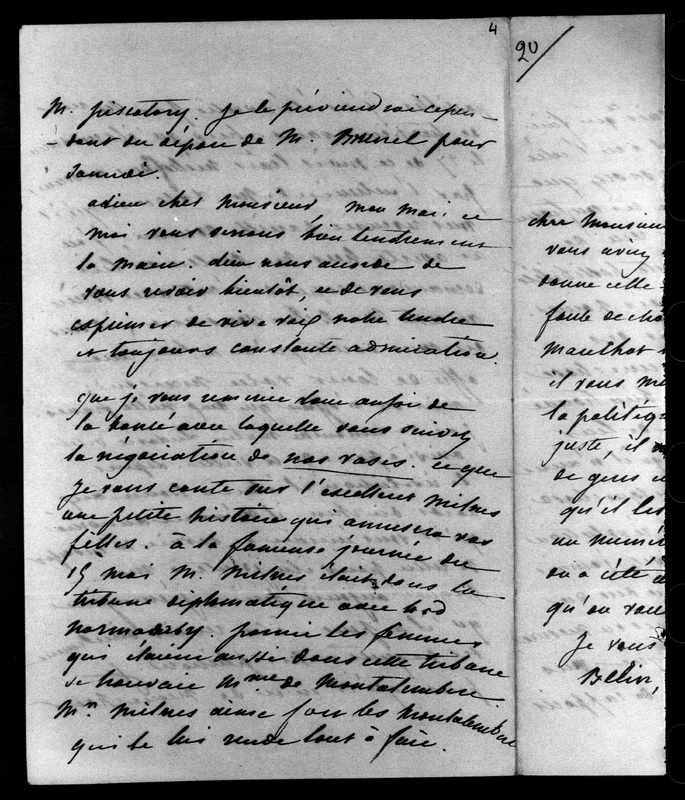 4
M. piscatory. je le préviendrai cepen-
-dant du départ de M. Brunel pour
samedi.
adieu cher Monsieur, mon mari et
moi vous serrons bien tendrement
la main. dieu nous accorde de
vous revoir bientôt, et de vous
exprimer de vive voix notre tendre
et toujours constante admiration.
que je vous remercie donc aussi de
la bonté avec laquelle vous suivez
la négociation de nos vases. et que
je vous conte sur l'excellent Milnes
une petite histoire qui amusera vos
filles. à la fameuse journée du
15 mai M. Milnes était dans la
tribune diplomatique avec lord
Normamby. parmi les femmes
qui étaient aussi dans cette tribune
se trouvait Mme de Montalembert
Mr. Milnes aime fort les Montalembert
qui le lui rendent tout à fait.
20
cher Monsieur
vous aviez
donné cette
foule de cho
Mauthot
il vous
la politiq
juste, il
de gens
qu'il les
un numér
on a été
qu'on vou
Je vous